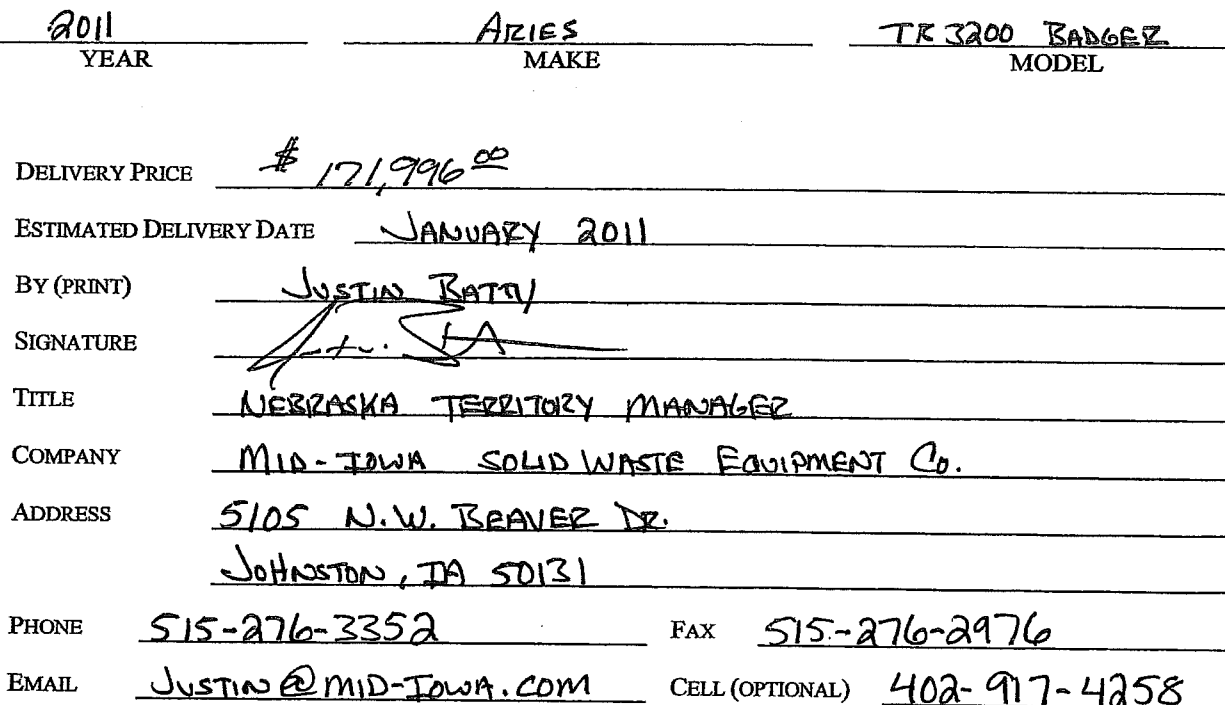 2011 ARIES TR 3200 BADGER
YEAR MAKE MODEL
DELIVERY PRICE $ 171,996 00
ESTIMATED DELIVERY DATE JANUARY 2011
BY (PRINT) JUSTIN BATTY
SIGNATURE
TITLE NEBRASKA TERRITORY MANAGER
COMPANY MID-IOWA SOLID WASTE EQUIPMENT CO.
ADDRESS 5105 N.W. BEAVER DR.
JOHNSTON, IA 50131
PHONE 515-276-3352 FAX 515-276-2976
EMAIL JUSTIN@MID-IOWA.COM CELL (OPTIONAL) 402-917-4258